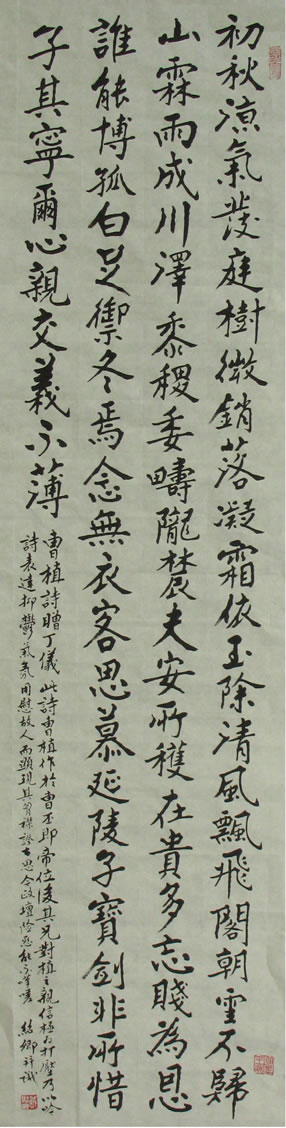 初秋涼氣發庭樹微銷落凝霜依玉除清風飄飛閣朝雲不歸
山霖雨成川澤黍稷委疇隴農夫安所穫在貴多忘賤為恩
誰能博狐白足禦冬焉念無衣客思慕延陵子寶劍非所惜
子其寧爾心親交義不薄
曹植詩贈丁儀 此詩曹植作於曹丕即帝位後其兄對植之親信極力打壓乃以吟
詩表達抑鬱氣氛用慰故人而顯現其胸襟證古思今政壇險惡能不